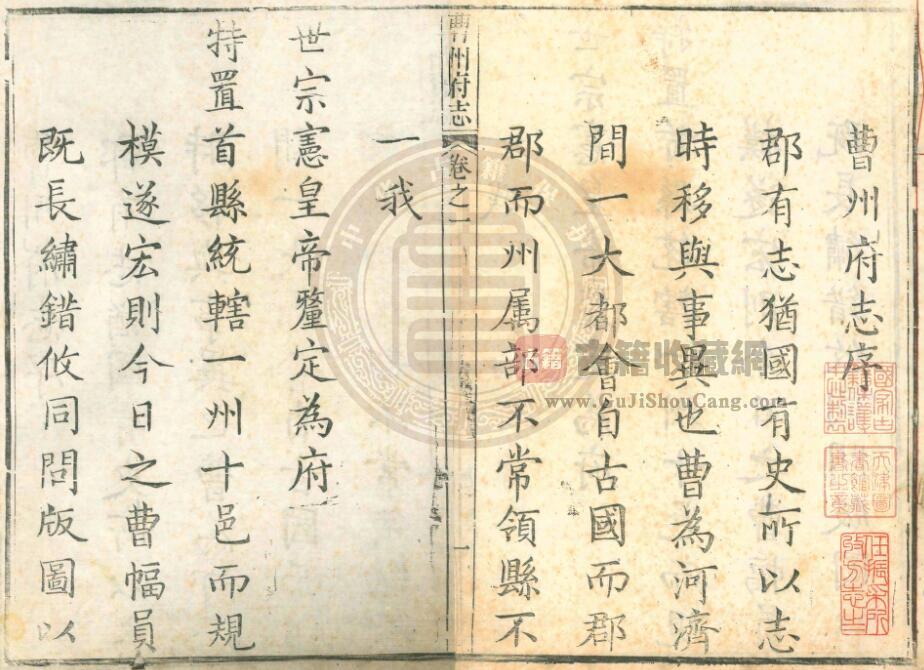 曹州府志序
郡有志猶國有史所以志
時移與事異也曹為河濟
間一大都會自古國而郡
郡而州属部不常領縣不
曹州府志
卷之一
一
一我
世宗憲皇帝釐定為府
特置首縣統轄一州十邑而規
模遂宏則今日之曹幅員
既長繡錯攸同問版圖以
古籍收藏網
www.GuJiShouCang.com
國家古
籍保護
天津圖
書館藏
書之章
任振采所
收方志之